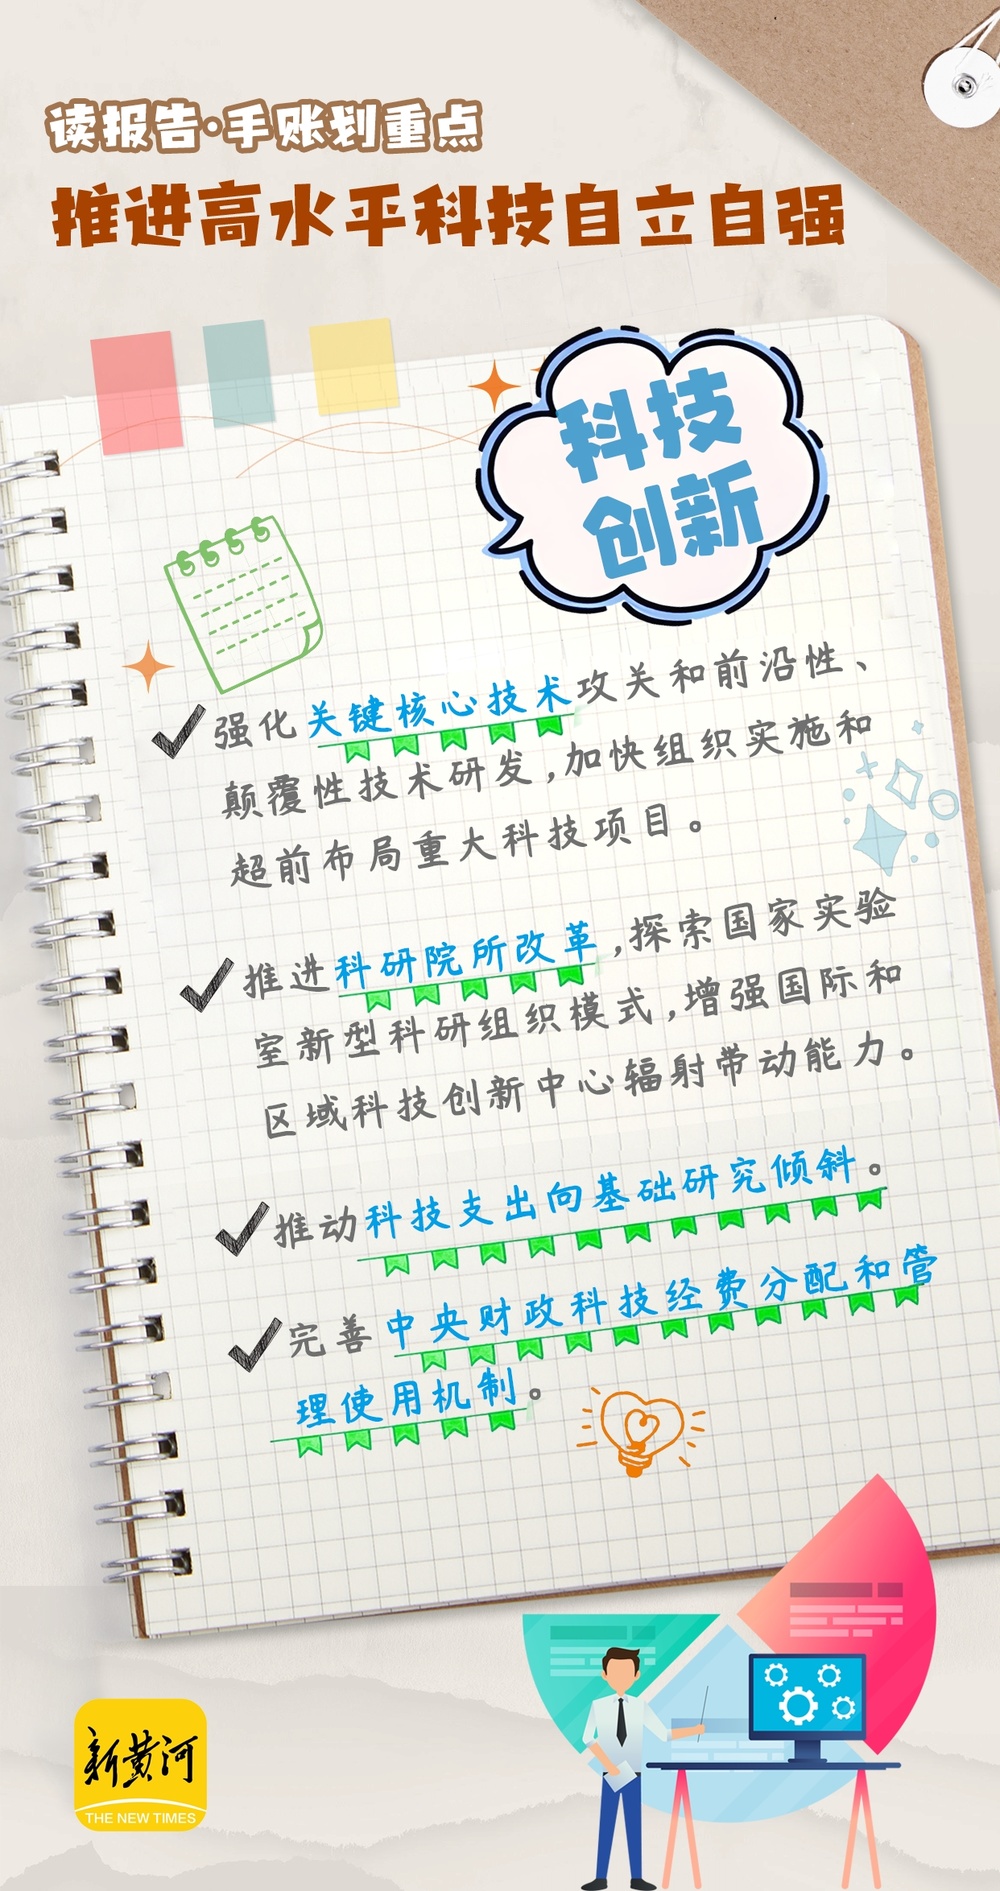 读报告·手账划重点
推进高水平科技自立自强
科技
创新
强化关键核心技术攻关和前沿性、
颠覆性技术研发,加快组织实施和
超前布局重大科技项目。
推进科研院所改革,探索国家实验
室新型科研组织模式,增强国际和
区域科技创新中心辐射带动能力。
推动科技支出向基础研究倾斜。
完善中央财政科技经费分配和管
理使用机制。
新黄河
THE NEW TIMES